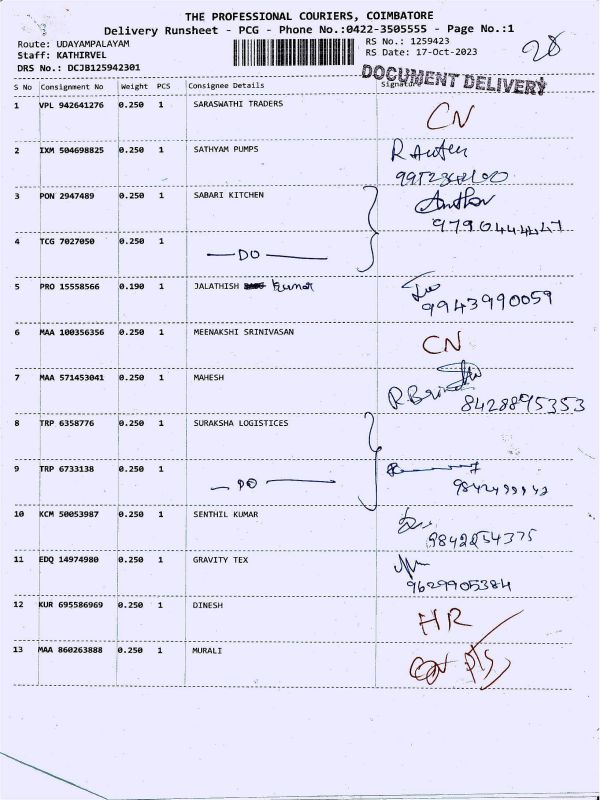 THE PROFESSIONAL COURIERS, COIMBATORE
Delivery Runsheet - PCG - Phone No.:0422-3505555 - Page No.:1
Route: UDAYAMPALAYAM
RS No.: 1259423
Staff: KATHIRVEL
RS Date: 17-Oct-2023
28
DRS No.: DCJB125942301
DOCUMENT DELIVERY
S No Consignment No Weight PCS Consignee Details Signature
1 VPL 942641276 0.250 1 SARASWATHI TRADERS CN
2 IXM 504698825 0.250 1 SATHYAM PUMPS R
3 PON 2947489 0.250 1 SABARI KITCHEN
9790444447
4 TCG 7027050 0.250 1
DO
5 PRO 15558566 0.190 1 JALATHISH Kumar
9943990059
6 MAA 100356356 0.250 1 MEENAKSHI SRINIVASAN CN
7 MAA 571453041 0.250 1 MAHESH
8428895353
8 TRP 6358776 0.250 1 SURAKSHA LOGISTICES
9 TRP 6733138 0.250 1
DO
10 KCM 50053987 0.250 1 SENTHIL KUMAR
9842254375
11 EDQ 14974980 0.250 1 GRAVITY TEX
9629905384
12 KUR 695586969 0.250 1 DINESH HR
13 MAA 860263888 0.250 1 MURALI